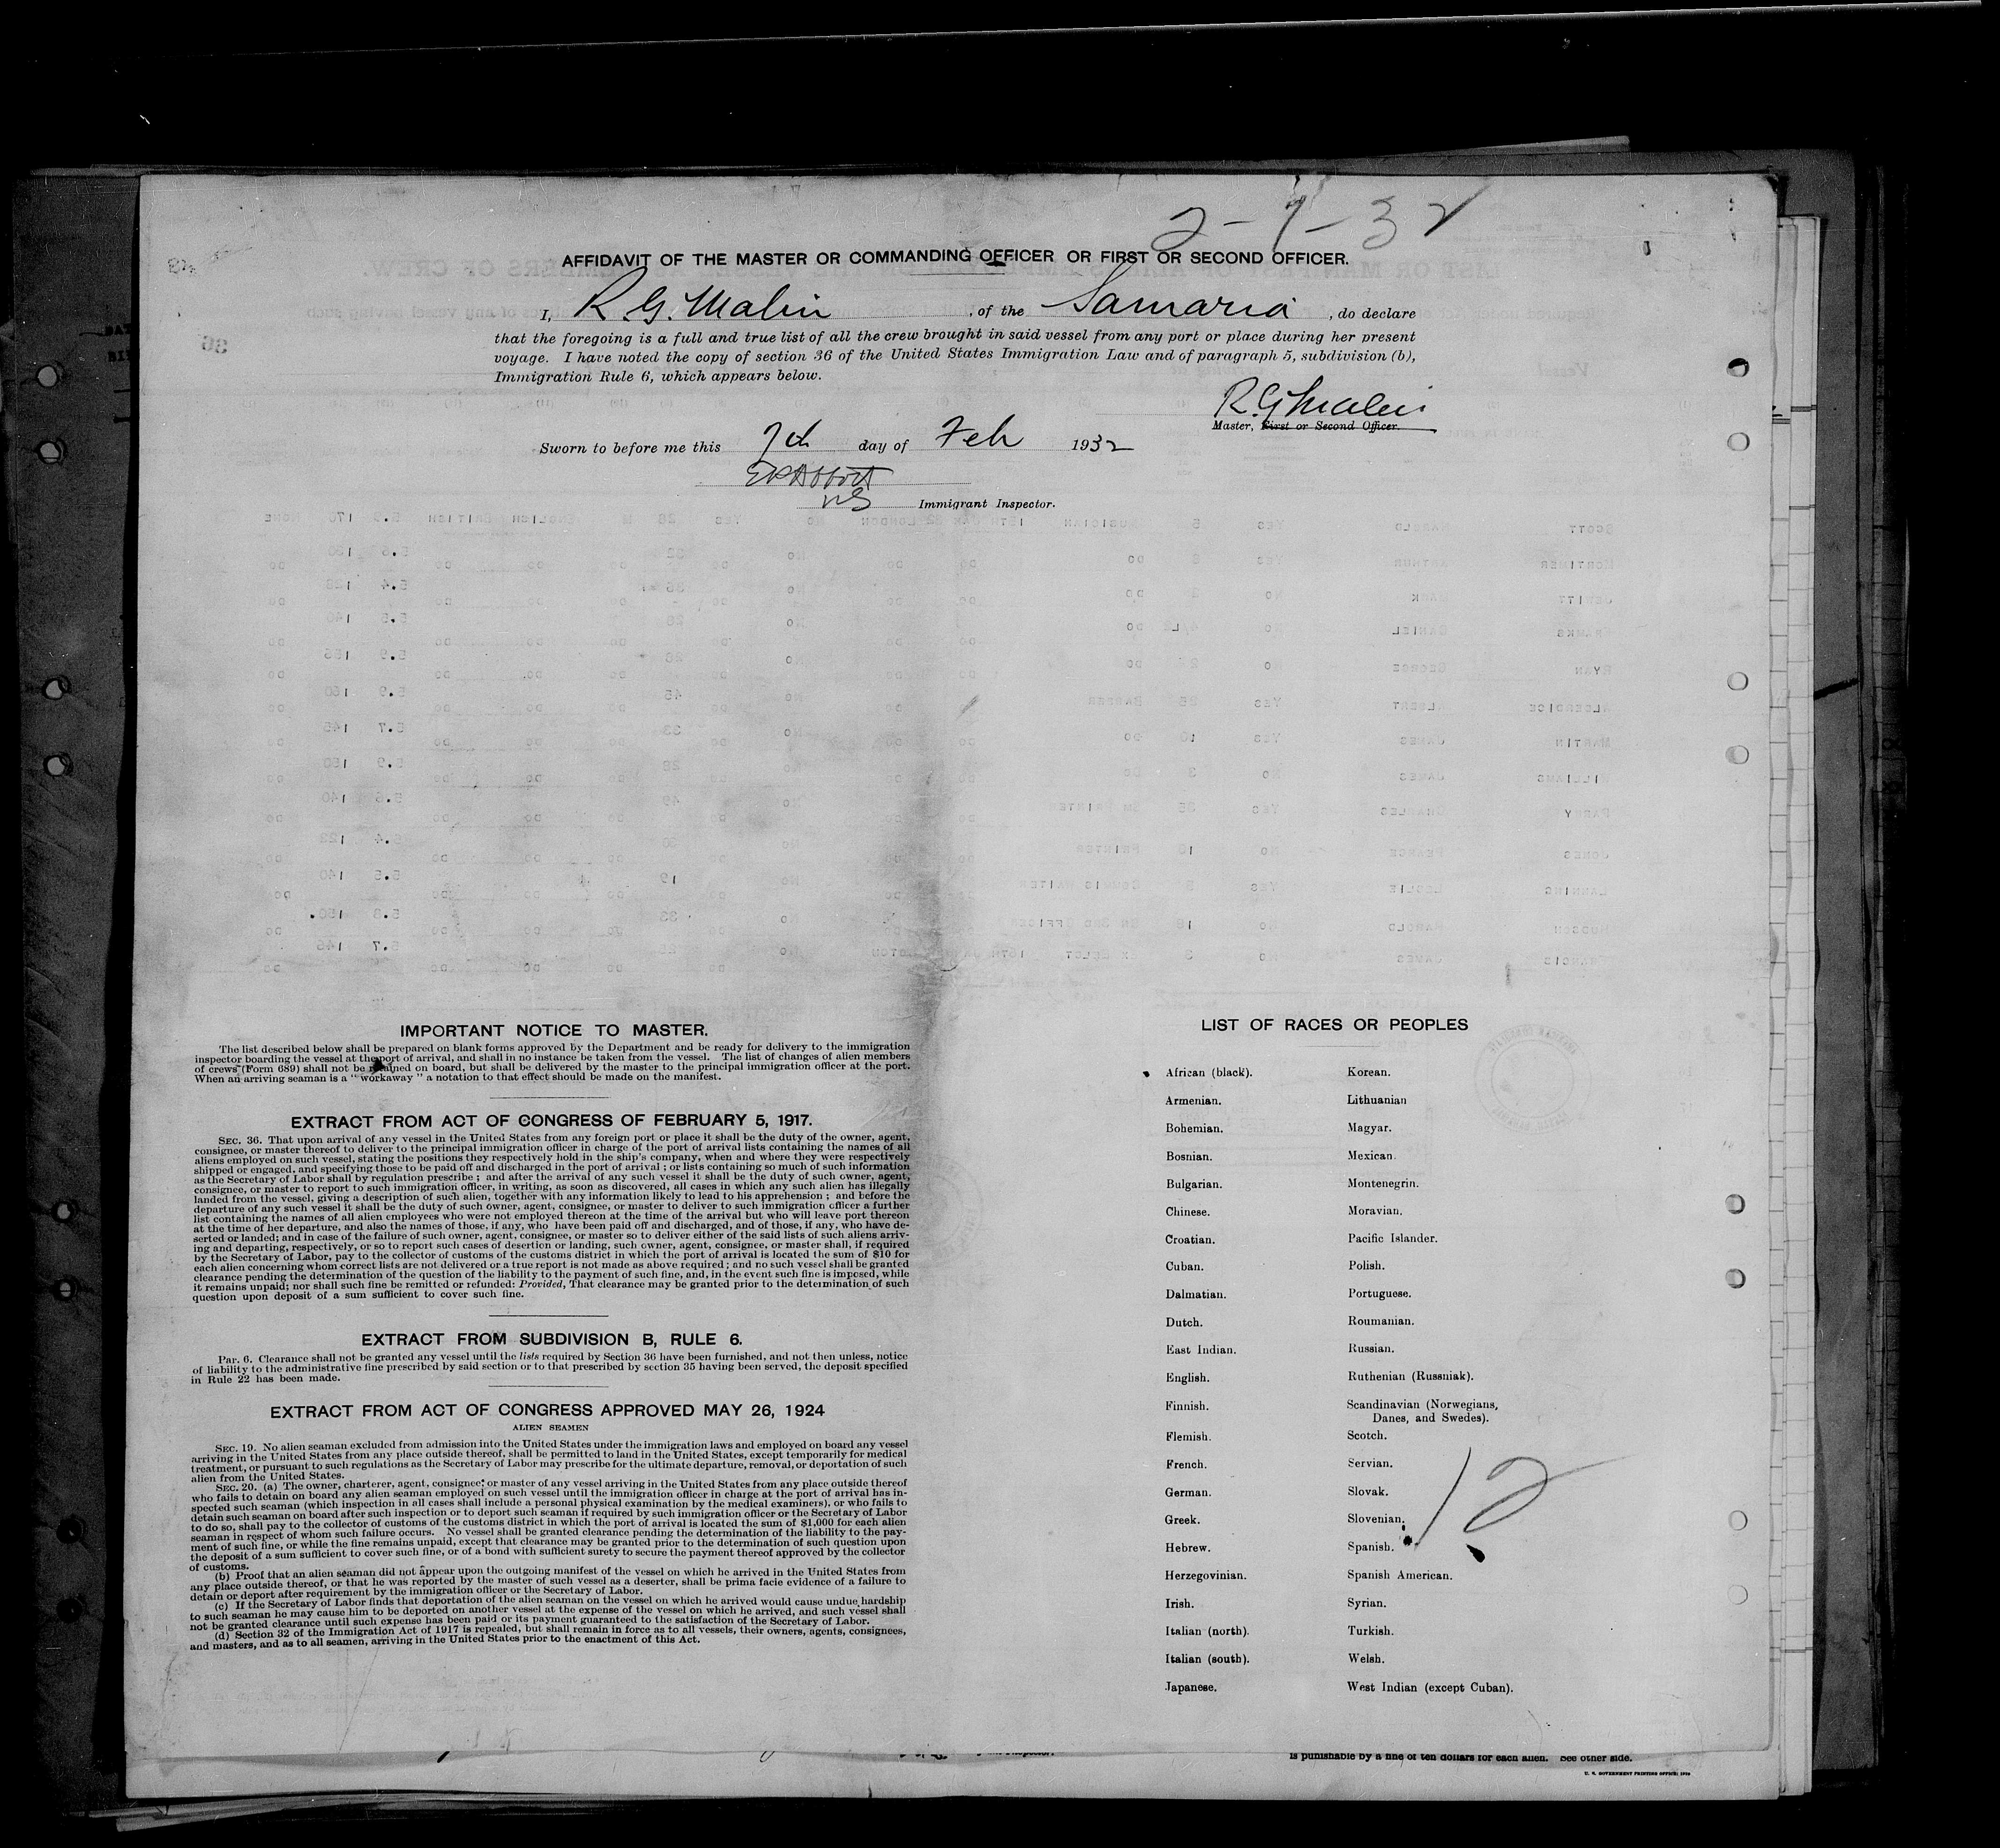 2-7-32
AFFIDAVIT OF THE MASTER OR COMMANDING OFFICER OR FIRST OR SECOND OFFICER.
I, R. G. Malin, of the Samaria, do declare
that the foregoing is a full and true list of all the crew brought in said vessel from any port or place during her present
voyage. I have noted the copy of section 36 of the United States Immigration Law and of paragraph 5, subdivision (b),
Immigration Rule 6, which appears below.
R. G. Malin
Master, First or Second Officer.
Sworn to before me this 7th day of Feb 1932
Immigrant Inspector.
IMPORTANT NOTICE TO MASTER.
The list described below shall be prepared on blank forms approved by the Department and be ready for delivery to the immigration
inspector boarding the vessel at the port of arrival, and shall in no instance be taken from the vessel. The list of changes of alien members
of crews (Form 689) shall not be retained on board, but shall be delivered by the master to the principal immigration officer at the port.
When an arriving seaman is a "workaway" a notation to that effect should be made on the manifest.
EXTRACT FROM ACT OF CONGRESS OF FEBRUARY 5, 1917.
SEC. 36. That upon arrival of any vessel in the United States from any foreign port or place it shall be the duty of the owner, agent,
consignee, or master thereof to deliver to the principal immigration officer in charge of the port of arrival lists containing the names of all
aliens employed on such vessel, stating the positions they respectively hold in the ship's company, when and where they were respectively
shipped or engaged, and specifying those to be paid off and discharged in the port of arrival; or lists containing so much of such information
as the Secretary of Labor shall by regulation prescribe; and after the arrival of any such vessel it shall be the duty of such owner, agent,
consignee, or master to report to such immigration officer, in writing, as soon as discovered, all cases in which any such alien has illegally
landed from the vessel, giving a description of such alien, together with any information likely to lead to his apprehension; and before the
departure of any such vessel it shall be the duty of such owner, agent, consignee, or master to deliver to such immigration officer a further
list containing the names of all alien employees who were not employed thereon at the time of the arrival but who will leave port thereon
at the time of her departure, and also the names of those, if any, who have been paid off and discharged, and of those, if any, who have de-
serted or landed; and in case of the failure of such owner, agent, consignee, or master so to deliver either of the said lists of such aliens arriv-
ing and departing, respectively, or so to report such cases of desertion or landing, such owner, agent, consignee, or master shall, if required
by the Secretary of Labor, pay to the collector of customs of the customs district in which the port of arrival is located the sum of $10 for
each alien concerning whom correct lists are not delivered or a true report is not made as above required; and no such vessel shall be granted
clearance pending the determination of the question of the liability to the payment of such fine, and, in the event such fine is imposed, while
it remains unpaid; nor shall such fine be remitted or refunded: Provided, That clearance may be granted prior to the determination of such
question upon deposit of a sum sufficient to cover such fine.
EXTRACT FROM SUBDIVISION B, RULE 6.
Par. 6. Clearance shall not be granted any vessel until the lists required by Section 36 have been furnished, and not then unless, notice
of liability to the administrative fine prescribed by said section or to that prescribed by section 35 having been served, the deposit specified
in Rule 22 has been made.
EXTRACT FROM ACT OF CONGRESS APPROVED MAY 26, 1924
ALIEN SEAMEN
SEC. 19. No alien seaman excluded from admission into the United States under the immigration laws and employed on board any vessel
arriving in the United States from any place outside thereof, shall be permitted to land in the United States, except temporarily for medical
treatment, or pursuant to such regulations as the Secretary of Labor may prescribe for the ultimate departure, removal, or deportation of such
alien from the United States.
SEC. 20. (a) The owner, charterer, agent, consignee, or master of any vessel arriving in the United States from any place outside thereof
who fails to detain on board any alien seaman employed on such vessel until the immigration officer in charge at the port of arrival has in-
spected such seaman (which inspection in all cases shall include a personal physical examination by the medical examiners), or who fails to
detain such seaman on board after such inspection or to deport such seaman if required by such immigration officer or the Secretary of Labor
to do so, shall pay to the collector of customs of the customs district in which the port of arrival is located the sum of $1,000 for each alien
seaman in respect of whom such failure occurs. No vessel shall be granted clearance pending the determination of the liability to the pay-
ment of such fine, or while the fine remains unpaid, except that clearance may be granted prior to the determination of such question upon
the deposit of a sum sufficient to cover such fine, or of a bond with sufficient surety to secure the payment thereof approved by the collector
of customs.
(b) Proof that an alien seaman did not appear upon the outgoing manifest of the vessel on which he arrived in the United States from
any place outside thereof, or that he was reported by the master of such vessel as a deserter, shall be prima facie evidence of a failure to
detain or deport after requirement by the immigration officer or the Secretary of Labor.
(c) If the Secretary of Labor finds that deportation of the alien seaman on the vessel on which he arrived would cause undue hardship
to such seaman he may cause him to be deported on another vessel at the expense of the vessel on which he arrived, and such vessel shall
not be granted clearance until such expense has been paid or its payment guaranteed to the satisfaction of the Secretary of Labor.
(d) Section 32 of the Immigration Act of 1917 is repealed, but shall remain in force as to all vessels, their owners, agents, consignees,
and masters, and as to all seamen, arriving in the United States prior to the enactment of this Act.
LIST OF RACES OR PEOPLES
African (black). Korean.
Armenian. Lithuanian
Bohemian. Magyar.
Bosnian. Mexican.
Bulgarian. Montenegrin.
Chinese. Moravian.
Croatian. Pacific Islander.
Cuban. Polish.
Dalmatian. Portuguese.
Dutch. Roumanian.
East Indian. Russian.
English. Ruthenian (Russniak).
Finnish. Scandinavian (Norwegians,
Danes, and Swedes).
Flemish. Scotch.
French. Servian.
German. Slovak.
Greek. Slovenian.
Hebrew. Spanish.
Herzegovinian. Spanish American.
Irish. Syrian.
Italian (north). Turkish.
Italian (south). Welsh.
Japanese. West Indian (except Cuban).
12
is punishable by a fine of ten dollars for each alien. See other side.